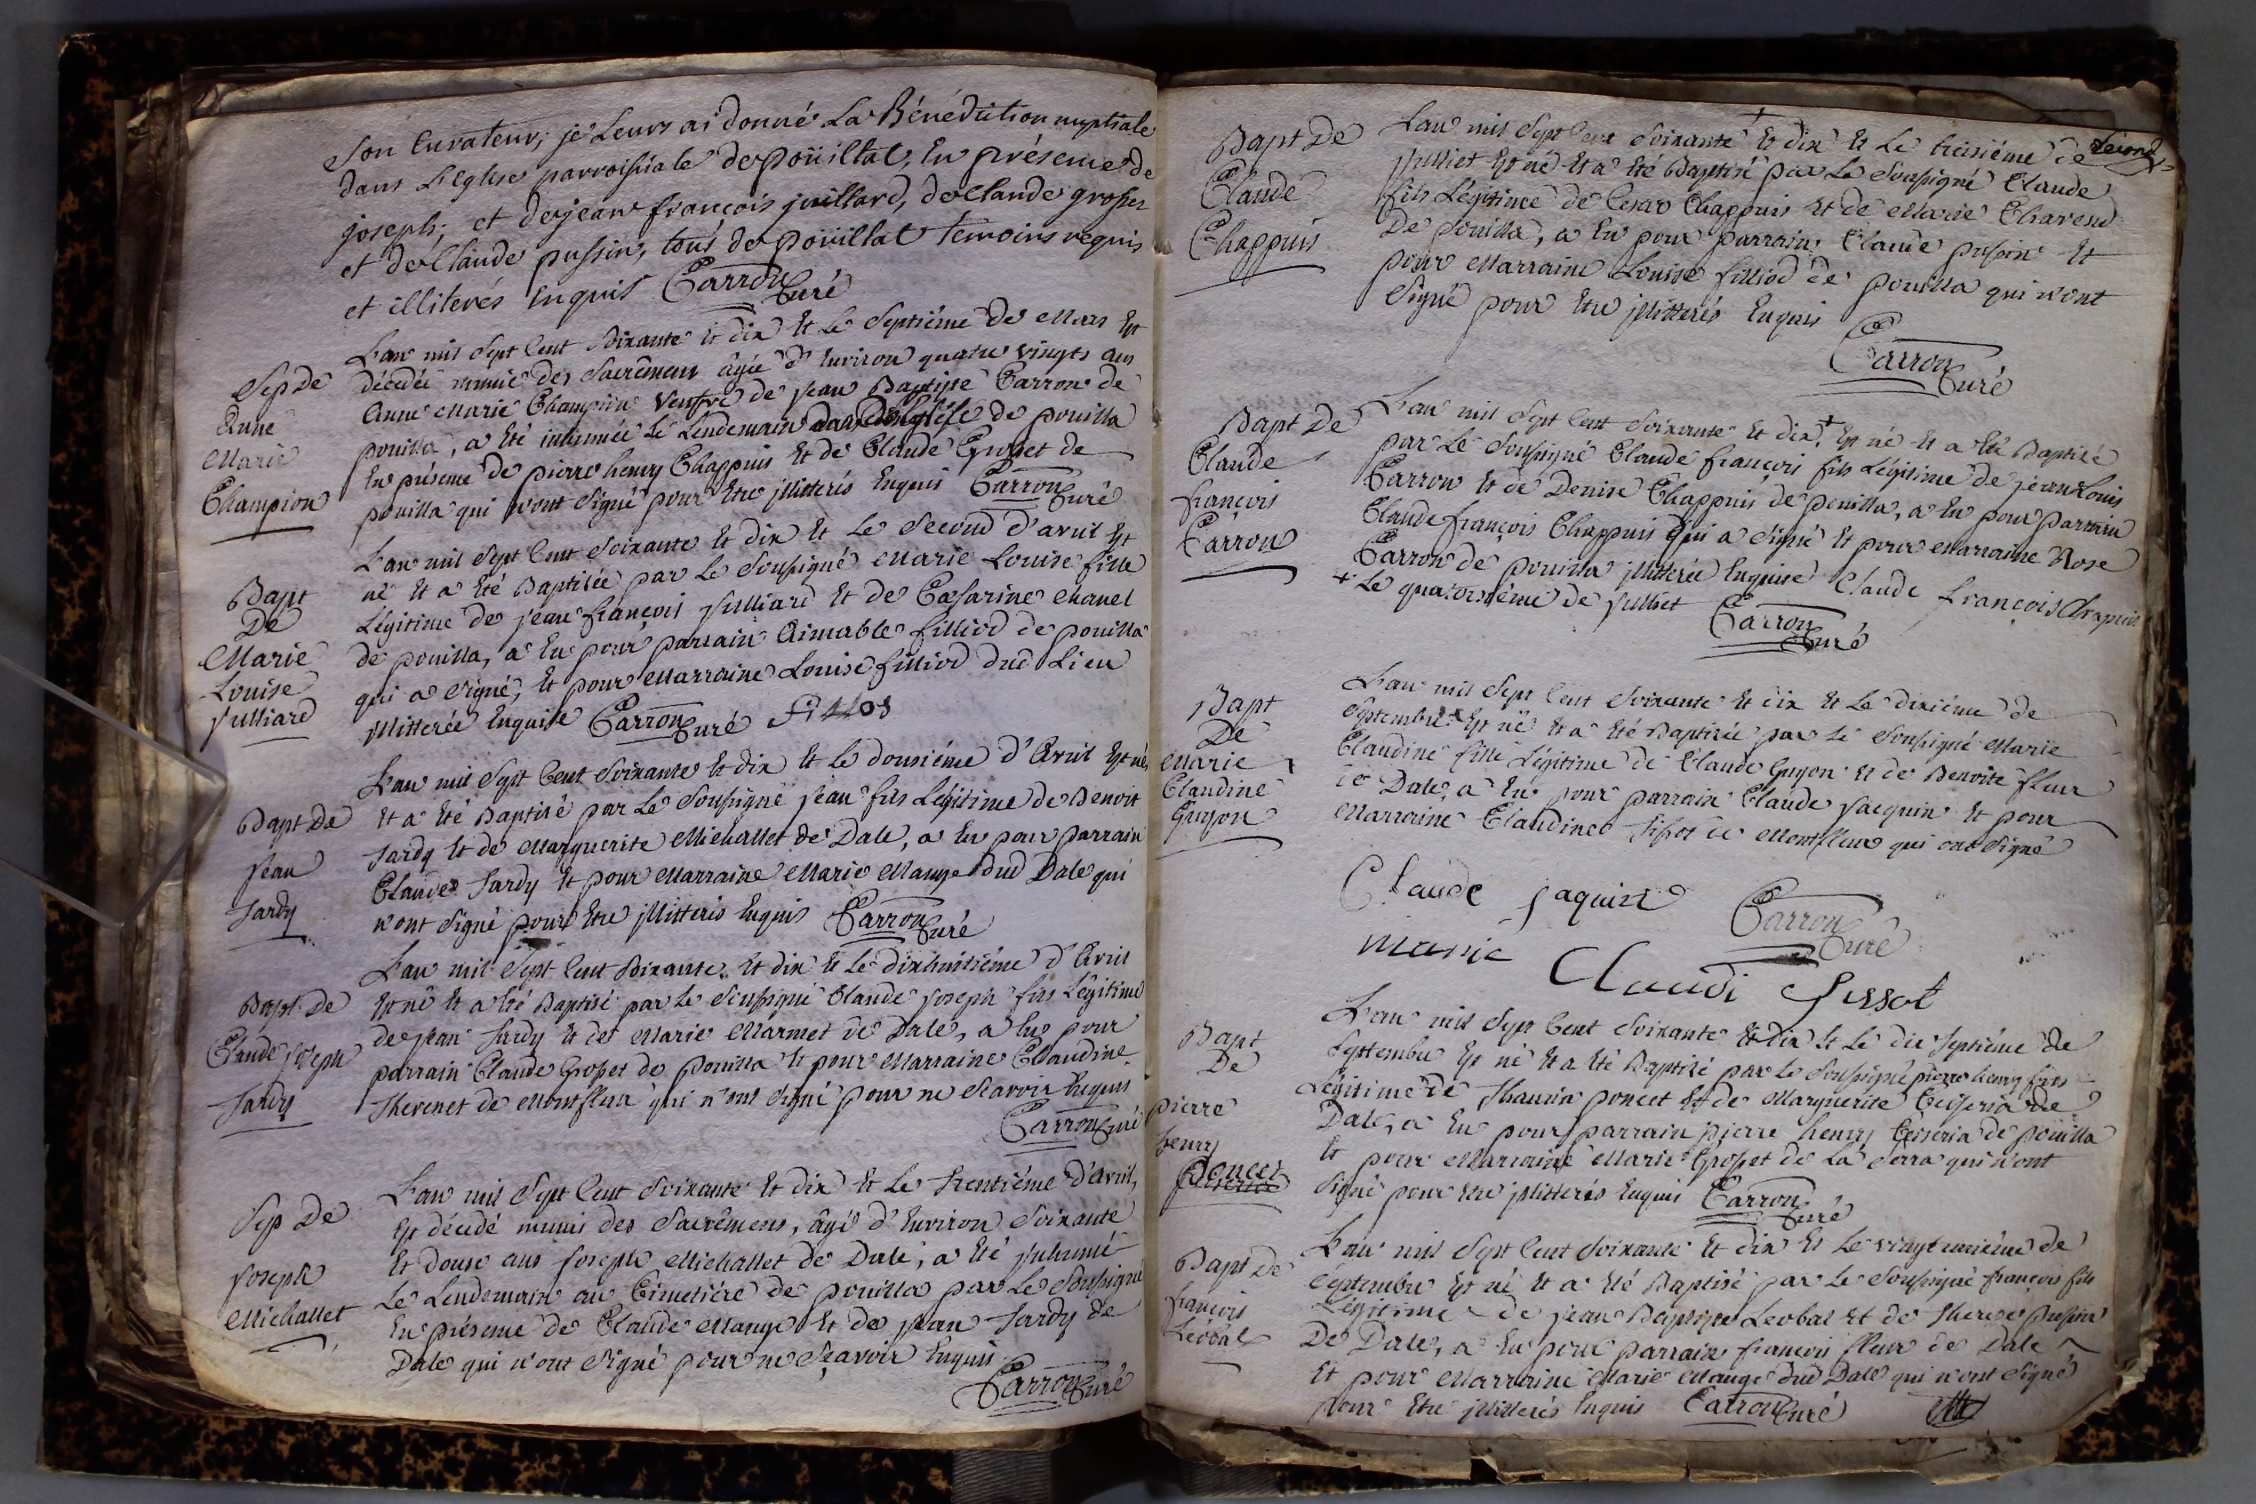 Son Curateur, je Leurs ai donné La Bénédiction nuptiale
dans L'Eglise parroissiale de poüillat, En présence de
joseph, et de jean françois juillard, de Claude grosset
et de Claude pussin, tous de poüillat témoins requis
et illiterés Enquis Carron Curé
Sep De
Anne
Marie
Champion
L'an mil Sept Cent Soixante et dix Et Le Septiéme de Mars Est
décédée munie des Sacrêmens âgée d'Environ quatre vingts ans
Anne Marie Champion Veufve de Jean Baptiste Carron de
pouilla, a Eté inhumée Le Lendemain dans L'église de pouilla
En présence de pierre henry Chappuis Et de Claude Grosset de
pouilla qui n'ont Signé pour Etre jllitterés Enquis Carron Curé
Bapt
De
Marie
Louise
Julliard
L'an mil Sept Cent Soixante Et dix Et Le Second d'avril Est
né Et a Eté Baptisée par Le Soussigné Marie Louise fille
Légitime de jean françois Julliard Et de Cæsarine Manel
de pouilla, a Eu pour parrain Aimable filliod de pouilla
qui a Signé, Et pour Marraine Louise filliod dud Lieu
jllitterée Enquise Carron Curé
Bapt De
Jean
Jardy
L'an mil Sept Cent Soixante Et dix Et Le dousiéme d'Avril Est né
Et a Eté Baptisé par Le Soussigné Jean fils Légitime de Benoit
Jardy Et de Marguerite Michallet de Dale, a Eu pour parrain
Claude Jardy Et pour Marraine Marie Mange dud Dale qui
n'ont Signé pour Etre jllitterés Enquis Carron Curé
Bapt De
Claude Joseph
Jardy
L'an mil Sept Cent Soixante Et dix Et Le dixhuitiéme d'Avril
Est né Et a Eté Baptisé par Le Soussigné Claude Joseph fils Légitime
de Jean Jardy Et de Marie Marmet de Dale, a Eu pour
parrain Claude Grosset de pouilla Et pour Marraine Claudine
Thevenet de Montfleur qui n'ont Signé pour ne Sçavoir Enquis
Carron Curé
Sep De
Joseph
Michallet
L'an mil Sept Cent Soixante Et dix Et Le Trentiéme d'Avril,
Est décédé muni des Sacrêmens, âgé d'Environ Soixante
Et douse ans Joseph Michallet de Dale, a Eté Inhumé
Le Lendemain au Cimetiére de pouilla par Le Soussigné
En présence de Claude Mange Et de Jean Jardy de
Dale qui n'ont Signé pour ne Sçavoir Enquis
Carron Curé
Bapt De
Claude
Chappuis
L'an mil Sept Cent Soixante Et dix Et Le treisiéme de
Julliet Est né Et a Eté Baptisé par Le Soussigné Claude
fils Légitime de Cesar Chappuis Et de Marie Chavend
De pouilla, a Eu pour parrain Claude pussin Et
pour Marraine Louise filliod de pouilla qui n'ont
Signé pour Etre jllitterés Enquis
Carron
Curé
Bapt De
Claude
françois
Carron
L'an mil Sept Cent Soixante Et dix, + Est né Et a Eté Baptisé
par Le Soussigné Claude françois fils Légitime de jean Louis
Carron Et de Denise Chappuis de pouilla, a Eu pour parrain
Claude françois Chappuis qui a Signé Et pour Marraine Rose
Carron de pouilla jllitterée Enquise Claude françois Chapuis
+ Le quatorsiéme de Julliet Carron
Curé
Bapt
De
Marie
Claudine
Guyon
L'an mil Sept Cent Soixante Et dix Et Le dixiéme de
Septembre Est né Et a Eté Baptisée par Le Soussigné Marie
Claudine fille Légitime de Claude Guyon Et de Benoite fleur
de Dale, a Eu pour parrain Claude Jacquin Et pour
Marraine Claudine Sissot de Montfleur qui ont Signé
Claude jaquin Carron
Curé
marie Claudi Sissot
Bapt
De
pierre
henry
Poncet
L'an mil Sept Cent Soixante Et dix Et Le dix Septiéme de
Septembre Est né Et a Eté Baptisé par Le Soussigné pierre henry fils
Légitime de Thauvia poncet Et de Marguerite Ceiseria de
Dale, a Eu pour parrain pierre henry Ceiseria de poüilla
Et pour Marraine Marie Grosset de La Serra qui n'ont
Signé pour Etre jllitterés Enquis Carron
Curé
Bapt De
françois
Leobal
L'an mil Sept Cent Soixante Et dix Et Le vingt uniéme de
Septembre Est né Et a Eté Baptisé par Le Soussigné françois fils
Légitime de jean Baptiste Leobal Et de Therese Pussin
De Dale, a Eu pour parrain françois fleur de Dale
Et pour Marraine Marie Mange dud Dale qui n'ont Signé
pour Etre jllitterés Enquis Carron Curé